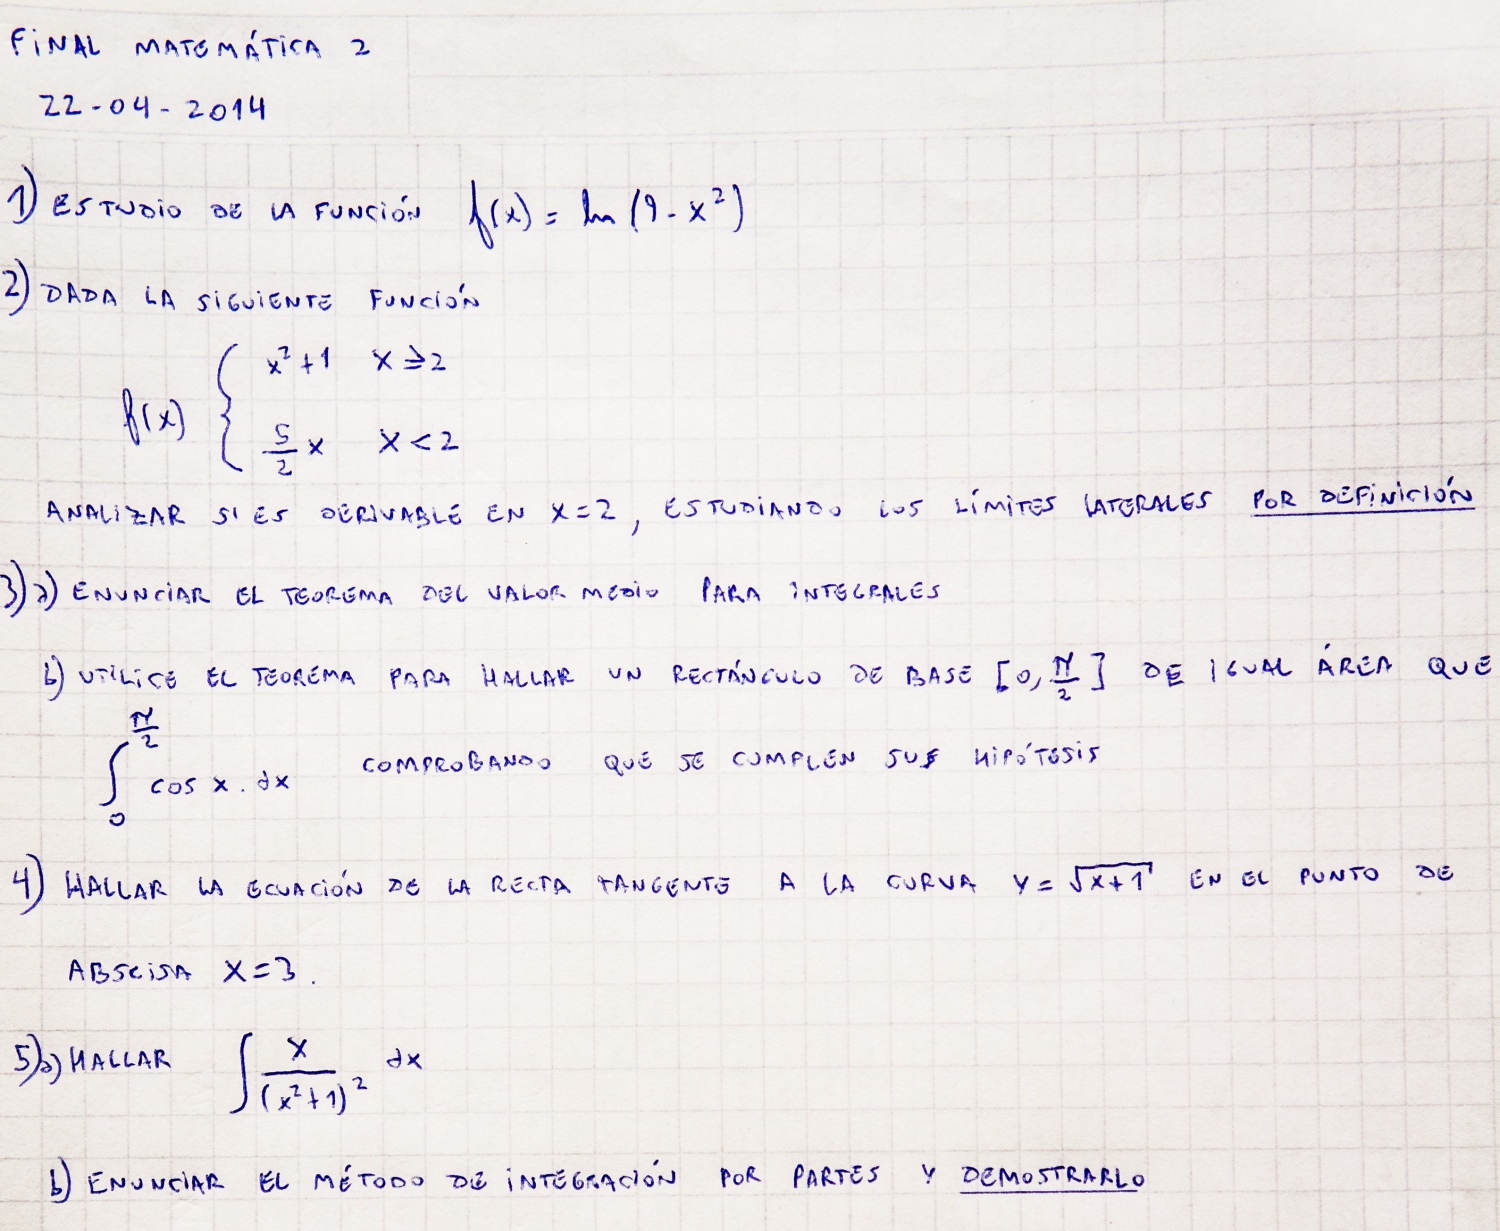 FINAL MATEMÁTICA 2
22-04-2014
1) ESTUDIO DE LA FUNCIÓN f(x) = ln (9-x²)
2) DADA LA SIGUIENTE FUNCIÓN
f(x) { x²+1 x ≥ 2
5/2 x x < 2
ANALIZAR SI ES DERIVABLE EN X=2, ESTUDIANDO LOS LÍMITES LATERALES POR DEFINICIÓN
3) a) ENUNCIAR EL TEOREMA DEL VALOR MEDIO PARA INTEGRALES
b) UTILICE EL TEOREMA PARA HALLAR UN RECTÁNGULO DE BASE [0, π/2] DE IGUAL ÁREA QUE
∫₀^(π/2) cos x . dx COMPROBANDO QUE SE CUMPLEN SUS HIPÓTESIS
4) HALLAR LA ECUACIÓN DE LA RECTA TANGENTE A LA CURVA Y = √(x+1) EN EL PUNTO DE
ABSCISA X=3.
5) a) HALLAR ∫ x/(x²+1)² dx
b) ENUNCIAR EL MÉTODO DE INTEGRACIÓN POR PARTES Y DEMOSTRARLO